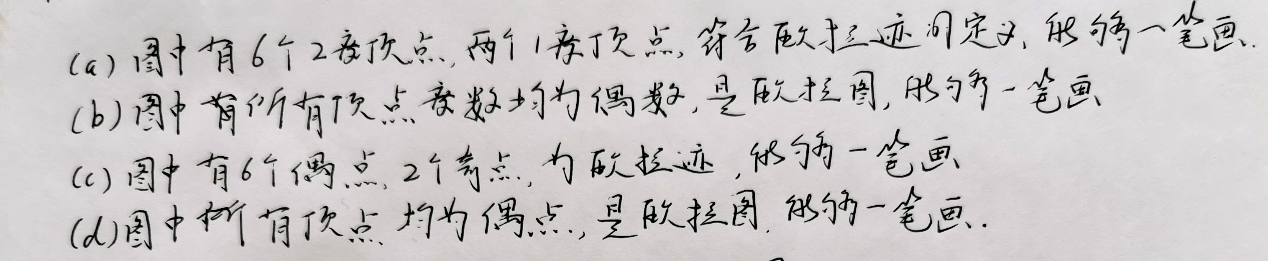 (a) 图中有6个2度顶点,两个1度顶点,符合欧拉迹的定义,能够一笔画.
(b) 图中有所有顶点度数均为偶数,是欧拉图,能够一笔画
(c) 图中有6个偶点,2个奇点,为欧拉迹,能够一笔画
(d) 图中所有顶点均为偶点,是欧拉图,能够一笔画.